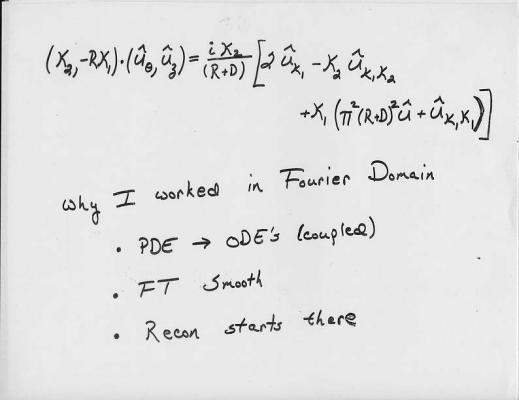 (X₂,-RX₁)·(û_θ,û_z) = iX₂/(R+D) [2û_X₁ - X₂ û_X₁X₂
+X₁ (π²(R+D)²û + û_X₁X₁)]
why I worked in Fourier Domain
• PDE → ODE's (coupled)
• FT Smooth
• Recon starts there